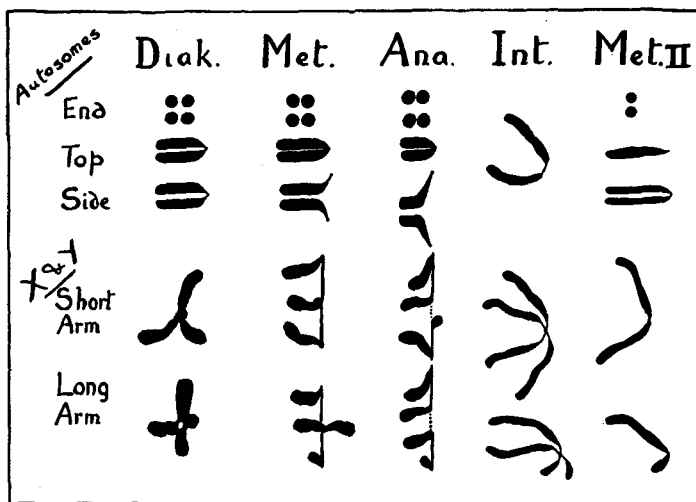 Autosomes
Diak. Met. Ana. Int. Met.II
End
Top
Side
X & Y
Short
Arm
Long
Arm